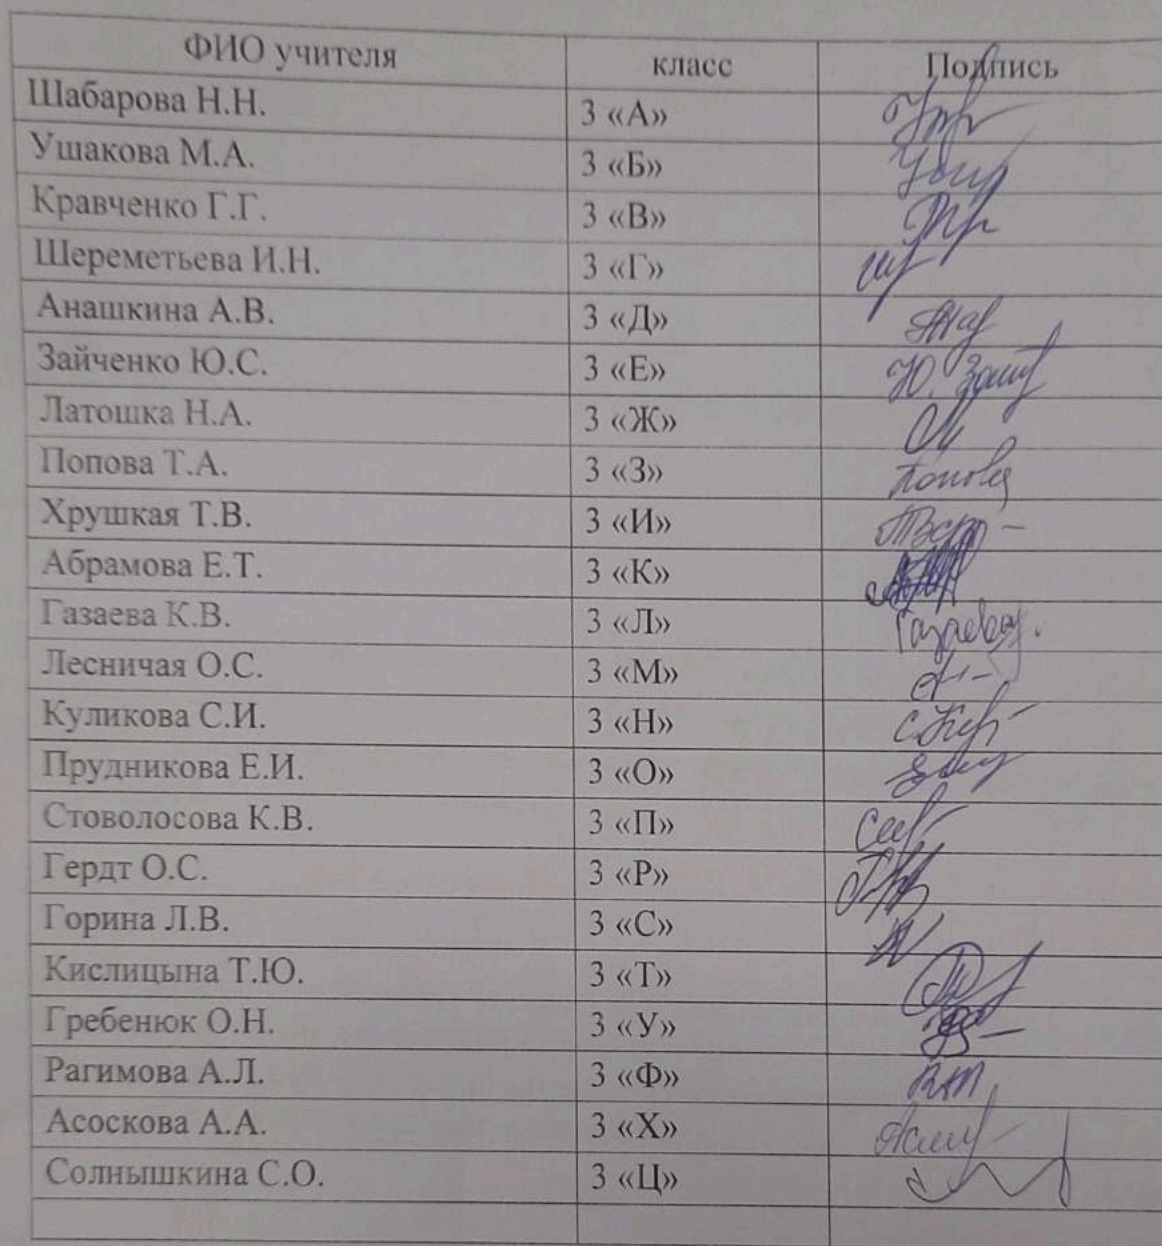 ФИО учителя класс Подпись
Шабарова Н.Н. 3 «А»
Ушакова М.А. 3 «Б»
Кравченко Г.Г. 3 «В»
Шереметьева И.Н. 3 «Г»
Анашкина А.В. 3 «Д»
Зайченко Ю.С. 3 «Е»
Латошка Н.А. 3 «Ж»
Попова Т.А. 3 «З» Попова
Хрушкая Т.В. 3 «И»
Абрамова Е.Т. 3 «К»
Газаева К.В. 3 «Л» Газаева
Лесничая О.С. 3 «М»
Куликова С.И. 3 «Н»
Прудникова Е.И. 3 «О»
Стоволосова К.В. 3 «П»
Гердт О.С. 3 «Р»
Горина Л.В. 3 «С»
Кислицына Т.Ю. 3 «Т»
Гребенюк О.Н. 3 «У»
Рагимова А.Л. 3 «Ф»
Асоскова А.А. 3 «Х»
Солнышкина С.О. 3 «Ц»